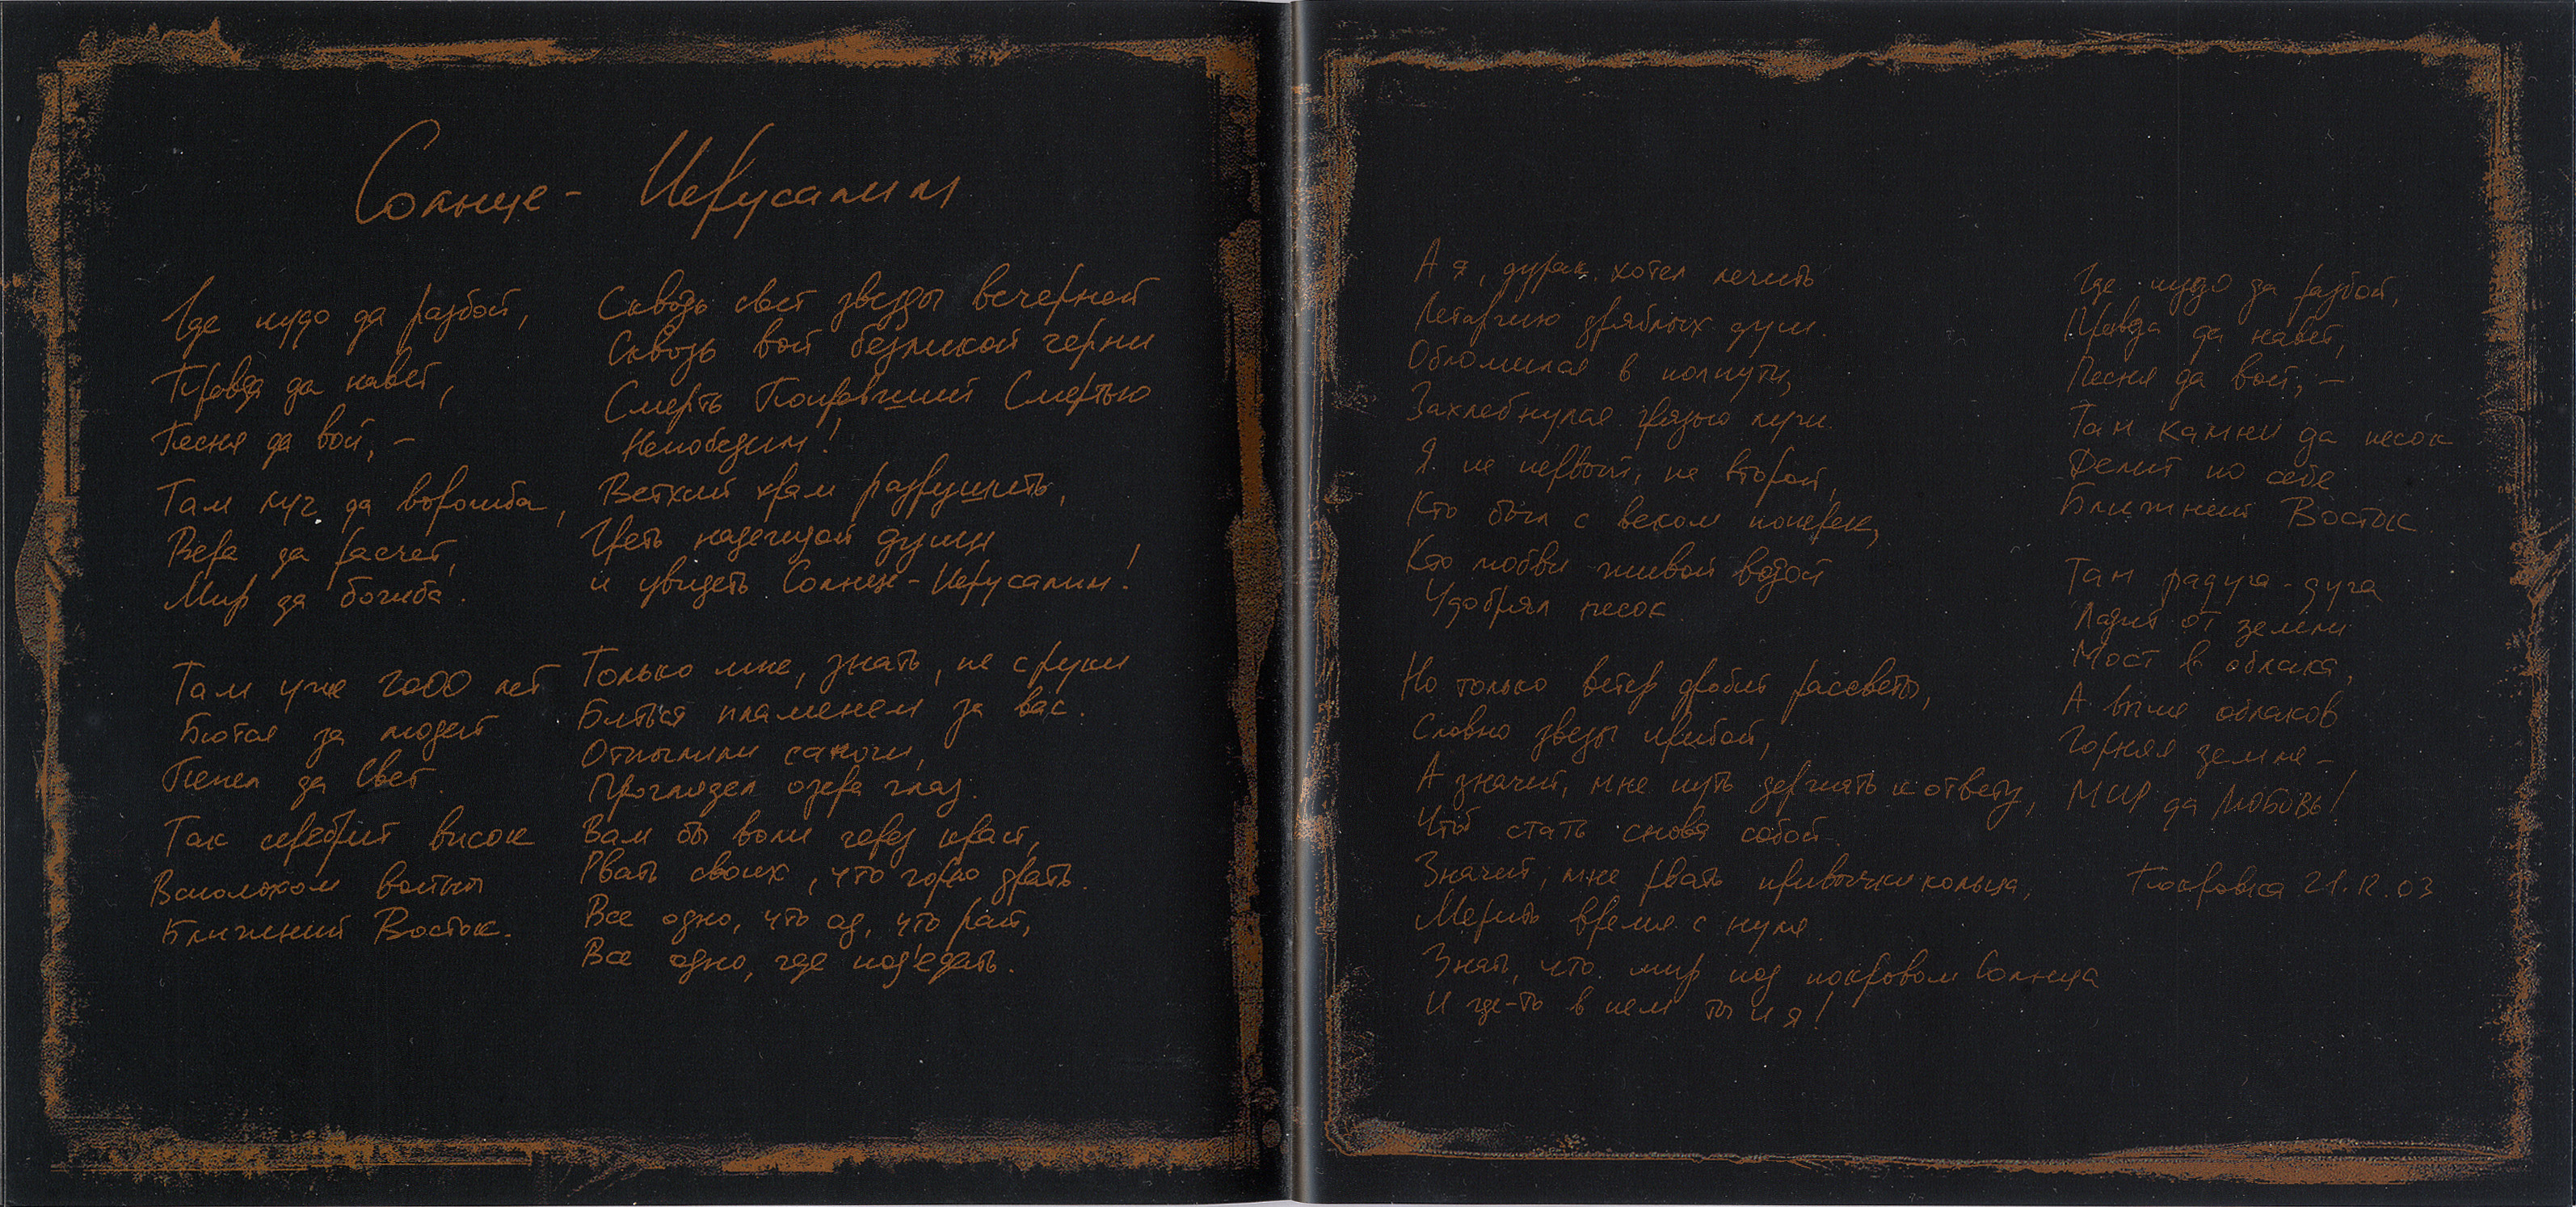 Солнце - Иерусалим
Где чудо да разбой,
Правда да навет,
Песня да вой, –
Там луч да ворожба,
Вера да расчет,
Мир да божба.
Там уже 2000 лет
Бьются за людей
Пепел да Свет.
Так серебрит висок
Всполохом войны
Ближний Восток.
Сквозь свет звезды вечерней
Сквозь вой безликой черни
Смерть Поправший Смертью
Непобедим!
Ветхий храм разрушить,
Греть надеждой души
и увидеть Солнце-Иерусалим!
Только мне, знать, не с руки
Биться пламенем за вас.
Отпылили сапоги,
Проглядел озера глаз.
Вам бы воли через край,
Рвать своих, что горло драть.
Все одно, что ад, что рай,
Все одно, где подъедать.
А я, дурак, хотел лечить
Летаргию дряблых душ.
Обломился в полпути,
Захлебнулся грязью луж.
Я не первый, не второй,
Кто был с веком поперек,
Кто любви живой водой
Удобрял песок
Но только ветер дробит рассветы,
Словно звезды прибой,
А значит, мне путь держать к ответу,
Чтоб стать снова собой.
Значит, мне рвать привычки кольца,
Мерить время с нуля.
Знать, что мир под покровом Солнца
И где-то в нем ты и я!
Где чудо да разбой,
Правда да навет,
Песня да вой, –
Там камни да песок
Делит по себе
Ближний Восток
Там радуга-дуга
Ладит от земли
Мост в облака,
А выше облаков
Горняя земля –
Мир да Любовь!
Покровка 21.12.03